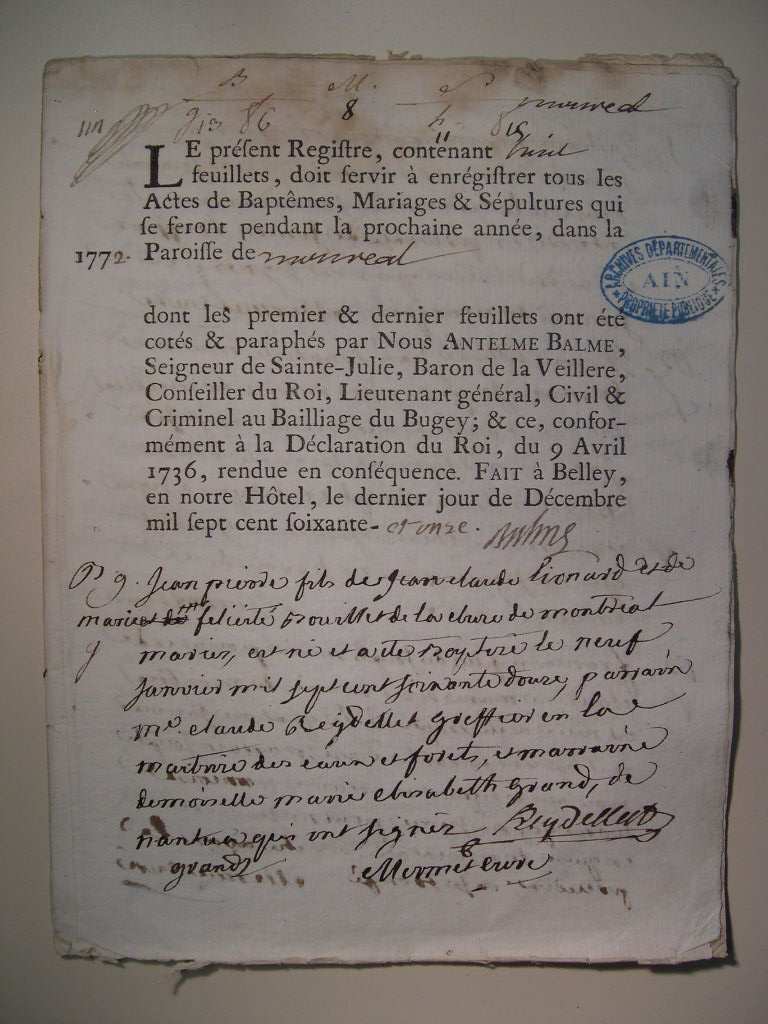 B M. S
8
montréal
LE préſent Regiſtre, contenant huit
feuillets, doit ſervir à enrégiſtrer tous les
Actes de Baptêmes, Mariages & Sépultures qui
ſe feront pendant la prochaine année, dans la
1772. Paroiſſe de montréal
ARCHIVES DÉPARTEMENTALES
AIN
PROPRIÉTÉ PUBLIQUE
dont les premier & dernier feuillets ont été
cotés & paraphés par Nous ANTELME BALME,
Seigneur de Sainte-Julie, Baron de la Veillere,
Conſeiller du Roi, Lieutenant général, Civil &
Criminel au Bailliage du Bugey; & ce, confor-
mément à la Déclaration du Roi, du 9 Avril
1736, rendue en conſéquence. FAIT à Belley,
en notre Hôtel, le dernier jour de Décembre
mil ſept cent ſoixante- et onze. Balme
jean pierre fils de jean claude lionard et de
marie felicité de la cluse de montréal
mariez, est né et a eté baptizé le neuf
janvier mil sept cent soixante douze, parrain
me. claude Reydellet greffier en la
maitrise des eaux et forets, et marraine
demoiselle marie elisabeth grand, de
nantua qui ont signéz Reydellet
grand Mermet curé